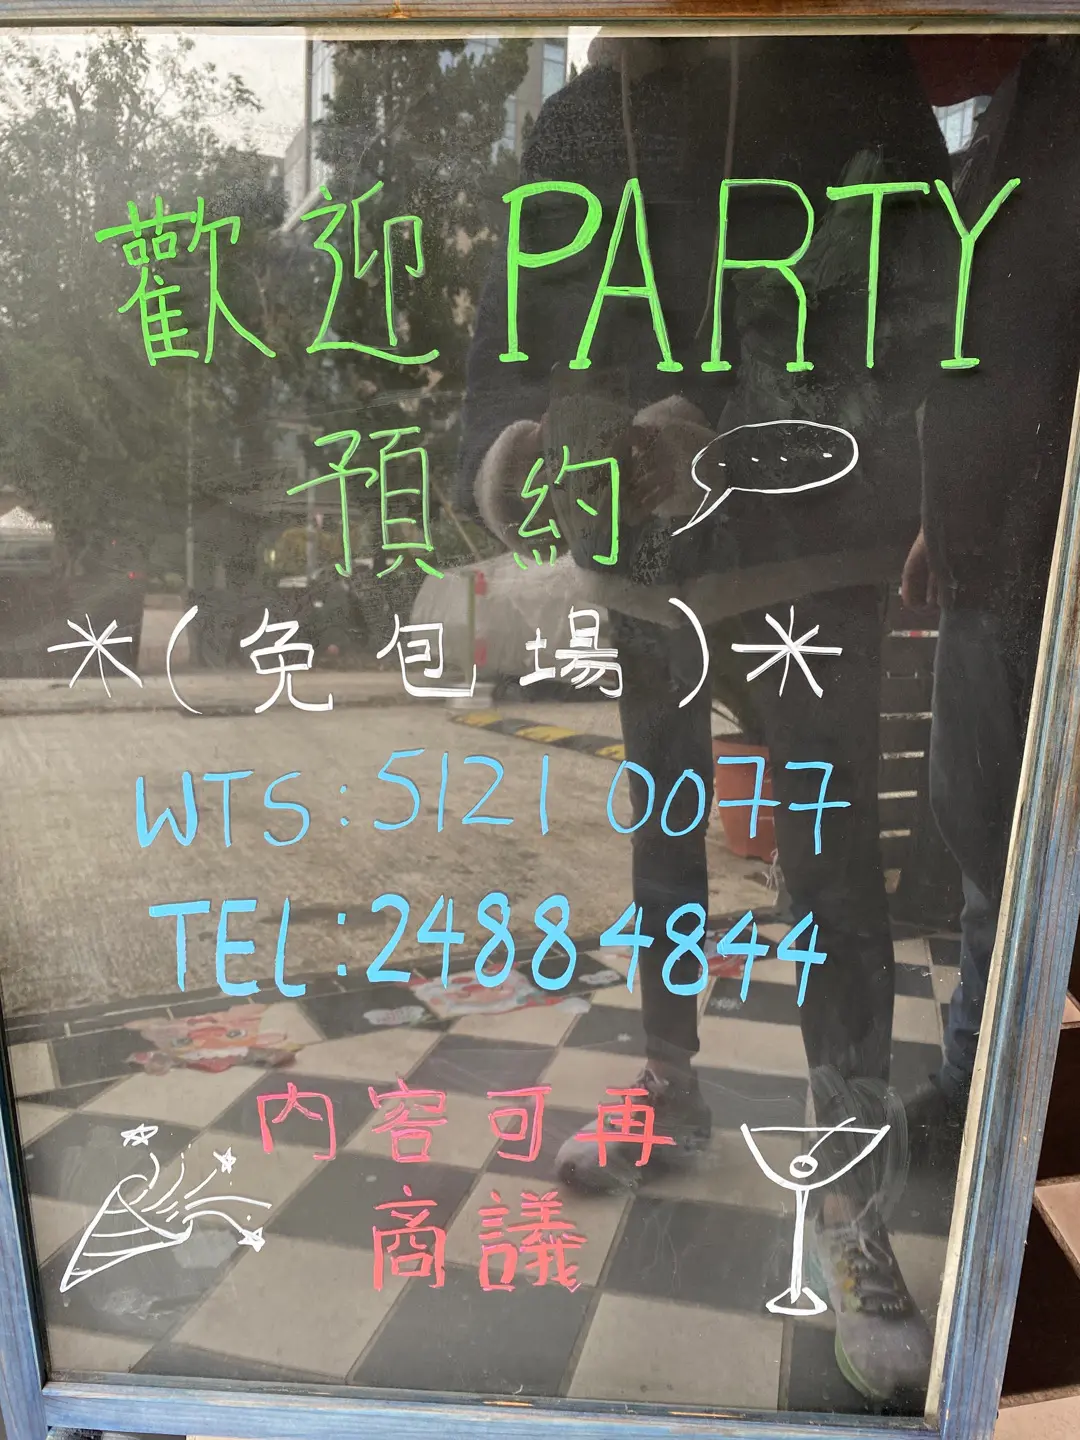 歡迎PARTY
預約
*(免包場)*
WTS:5121 0077
TEL:2488 4844
內容可再
商議